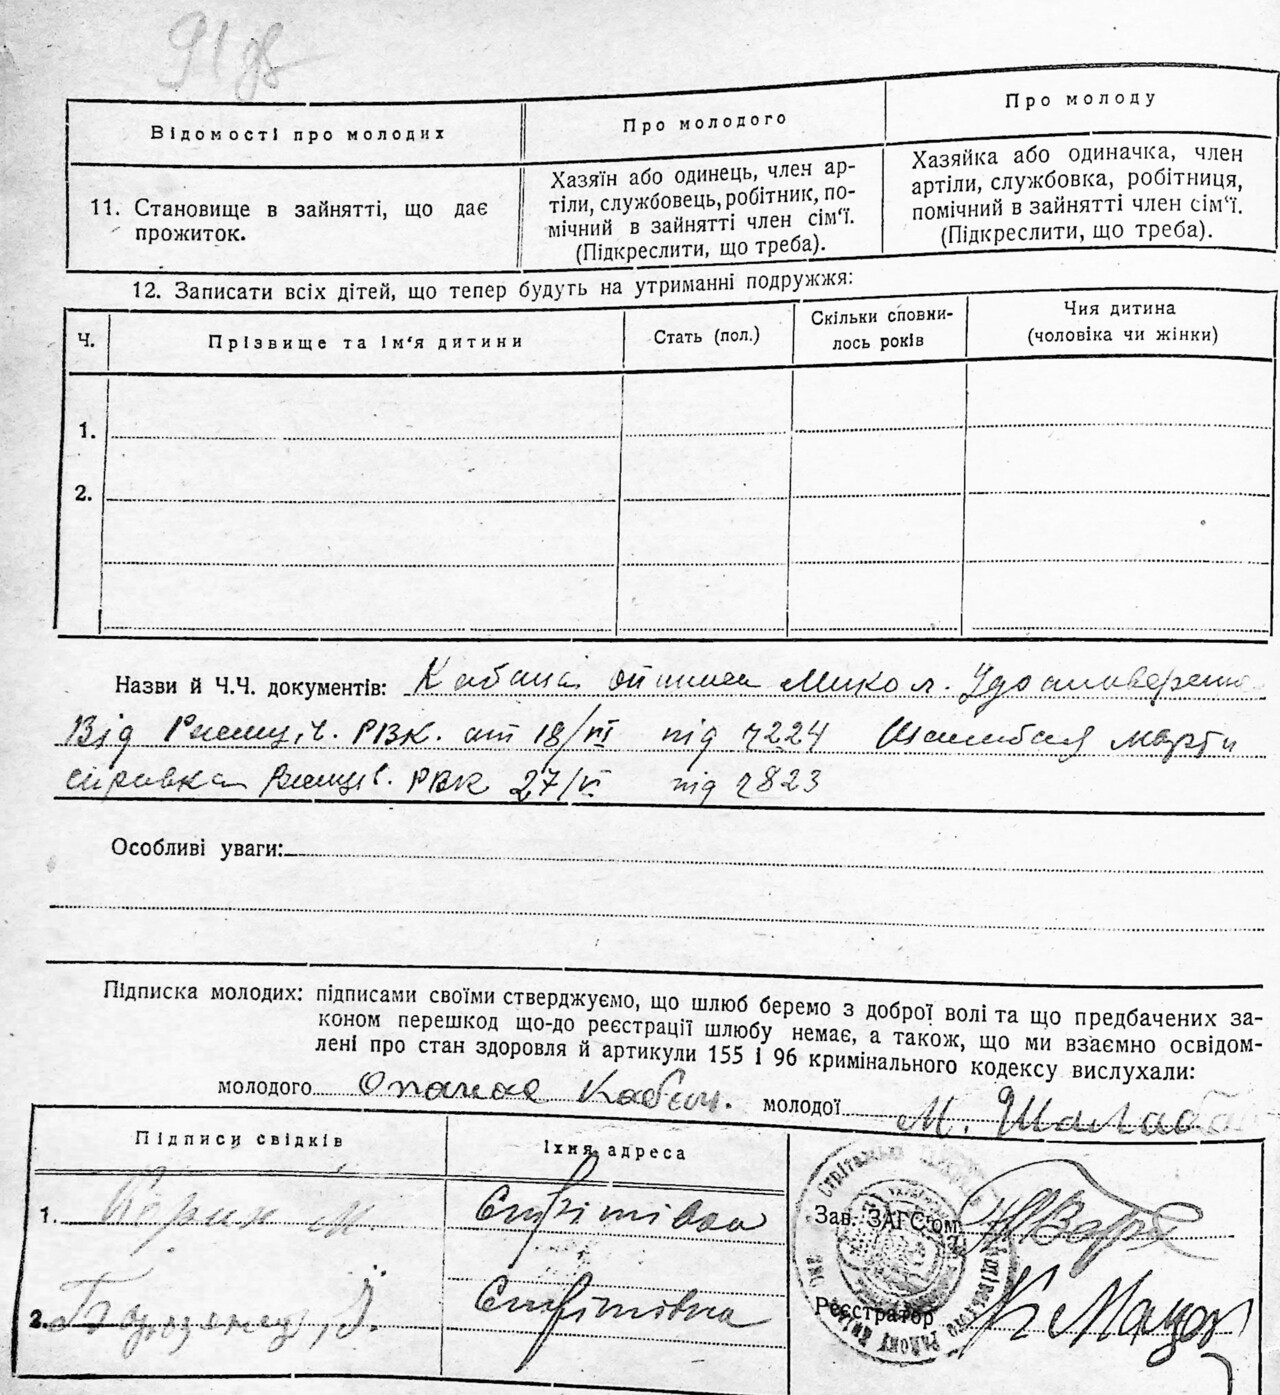 91 зв
Відомості про молодих
Про молодого
Про молоду
11. Становище в зайнятті, що дає
прожиток.
Хазяїн або одинець, член ар-
тіли, службовець, робітник, по-
мічний в зайнятті член сім'ї.
(Підкреслити, що треба).
Хазяйка або одиначка, член
артіли, службовка, робітниця,
помічний в зайнятті член сім'ї.
(Підкреслити, що треба).
12. Записати всіх дітей, що тепер будуть на утриманні подружжя:
Ч.
Прізвище та ім'я дитини
Стать (пол.)
Скільки сповни-
лось років
Чия дитина
(чоловіка чи жінки)
1.
2.
Назви й Ч.Ч. документів: Микол.
Від Ржищ. РВК. ат 18/VI під ч224 Марти
справка Ржищів. РВК 27/VI під ч823
Особливі уваги:
Підписка молодих: підписами своїми стверджуємо, що шлюб беремо з доброї волі та що предбачених за-
коном перешкод що-до реєстрації шлюбу немає, а також, що ми взаємно освідом-
лені про стан здоровля й артикули 155 і 96 кримінального кодексу вислухали:
молодого Опанас Кабан. молодої М. Шалаба
Підписи свідків
Їхня адреса
1. М. Стрітівка
2. Стрітівка
Зав. ЗАГС'ом
Реєстратор